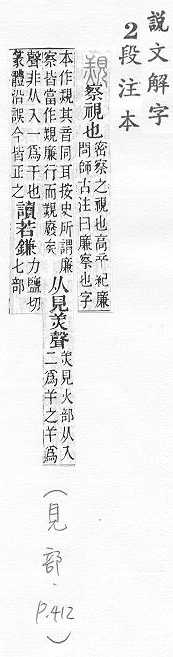 說文解字
2段注本
覝
察視也
密察之視也高平紀廉
問師古注曰廉察也字
本作覝其音同耳按史所謂廉
察皆當作覝廉行而覝廢矣
从見𤆍聲
𤆍見火部从入
二爲羊之羊爲
聲非从入一爲干也
篆體沿誤今皆正之
讀若鎌
力鹽切
七部
(見部.P.412)